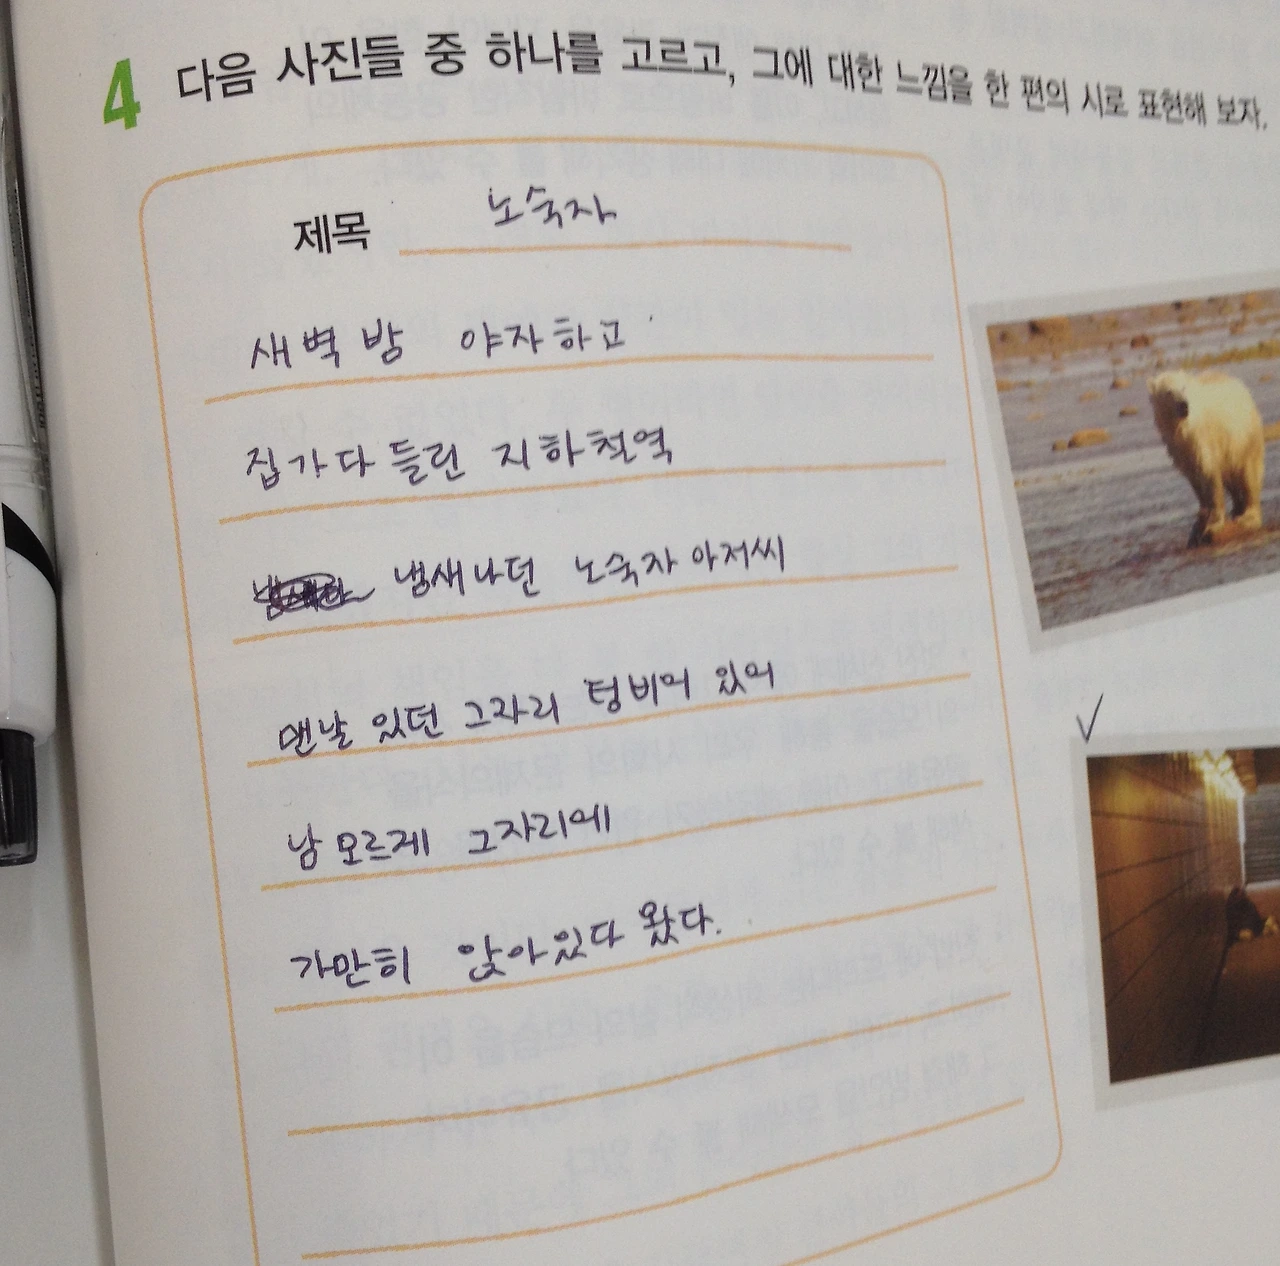 4 다음 사진들 중 하나를 고르고, 그에 대한 느낌을 한 편의 시로 표현해 보자.
제목 노숙자
새벽 밤 야자하고
집가다 들린 지하철역
냄새나던 노숙자 아저씨
맨날 있던 그자리 텅비어 있어
남 모르게 그자리에
가만히 앉아있다 왔다.